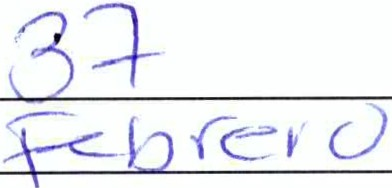 37
Febrero